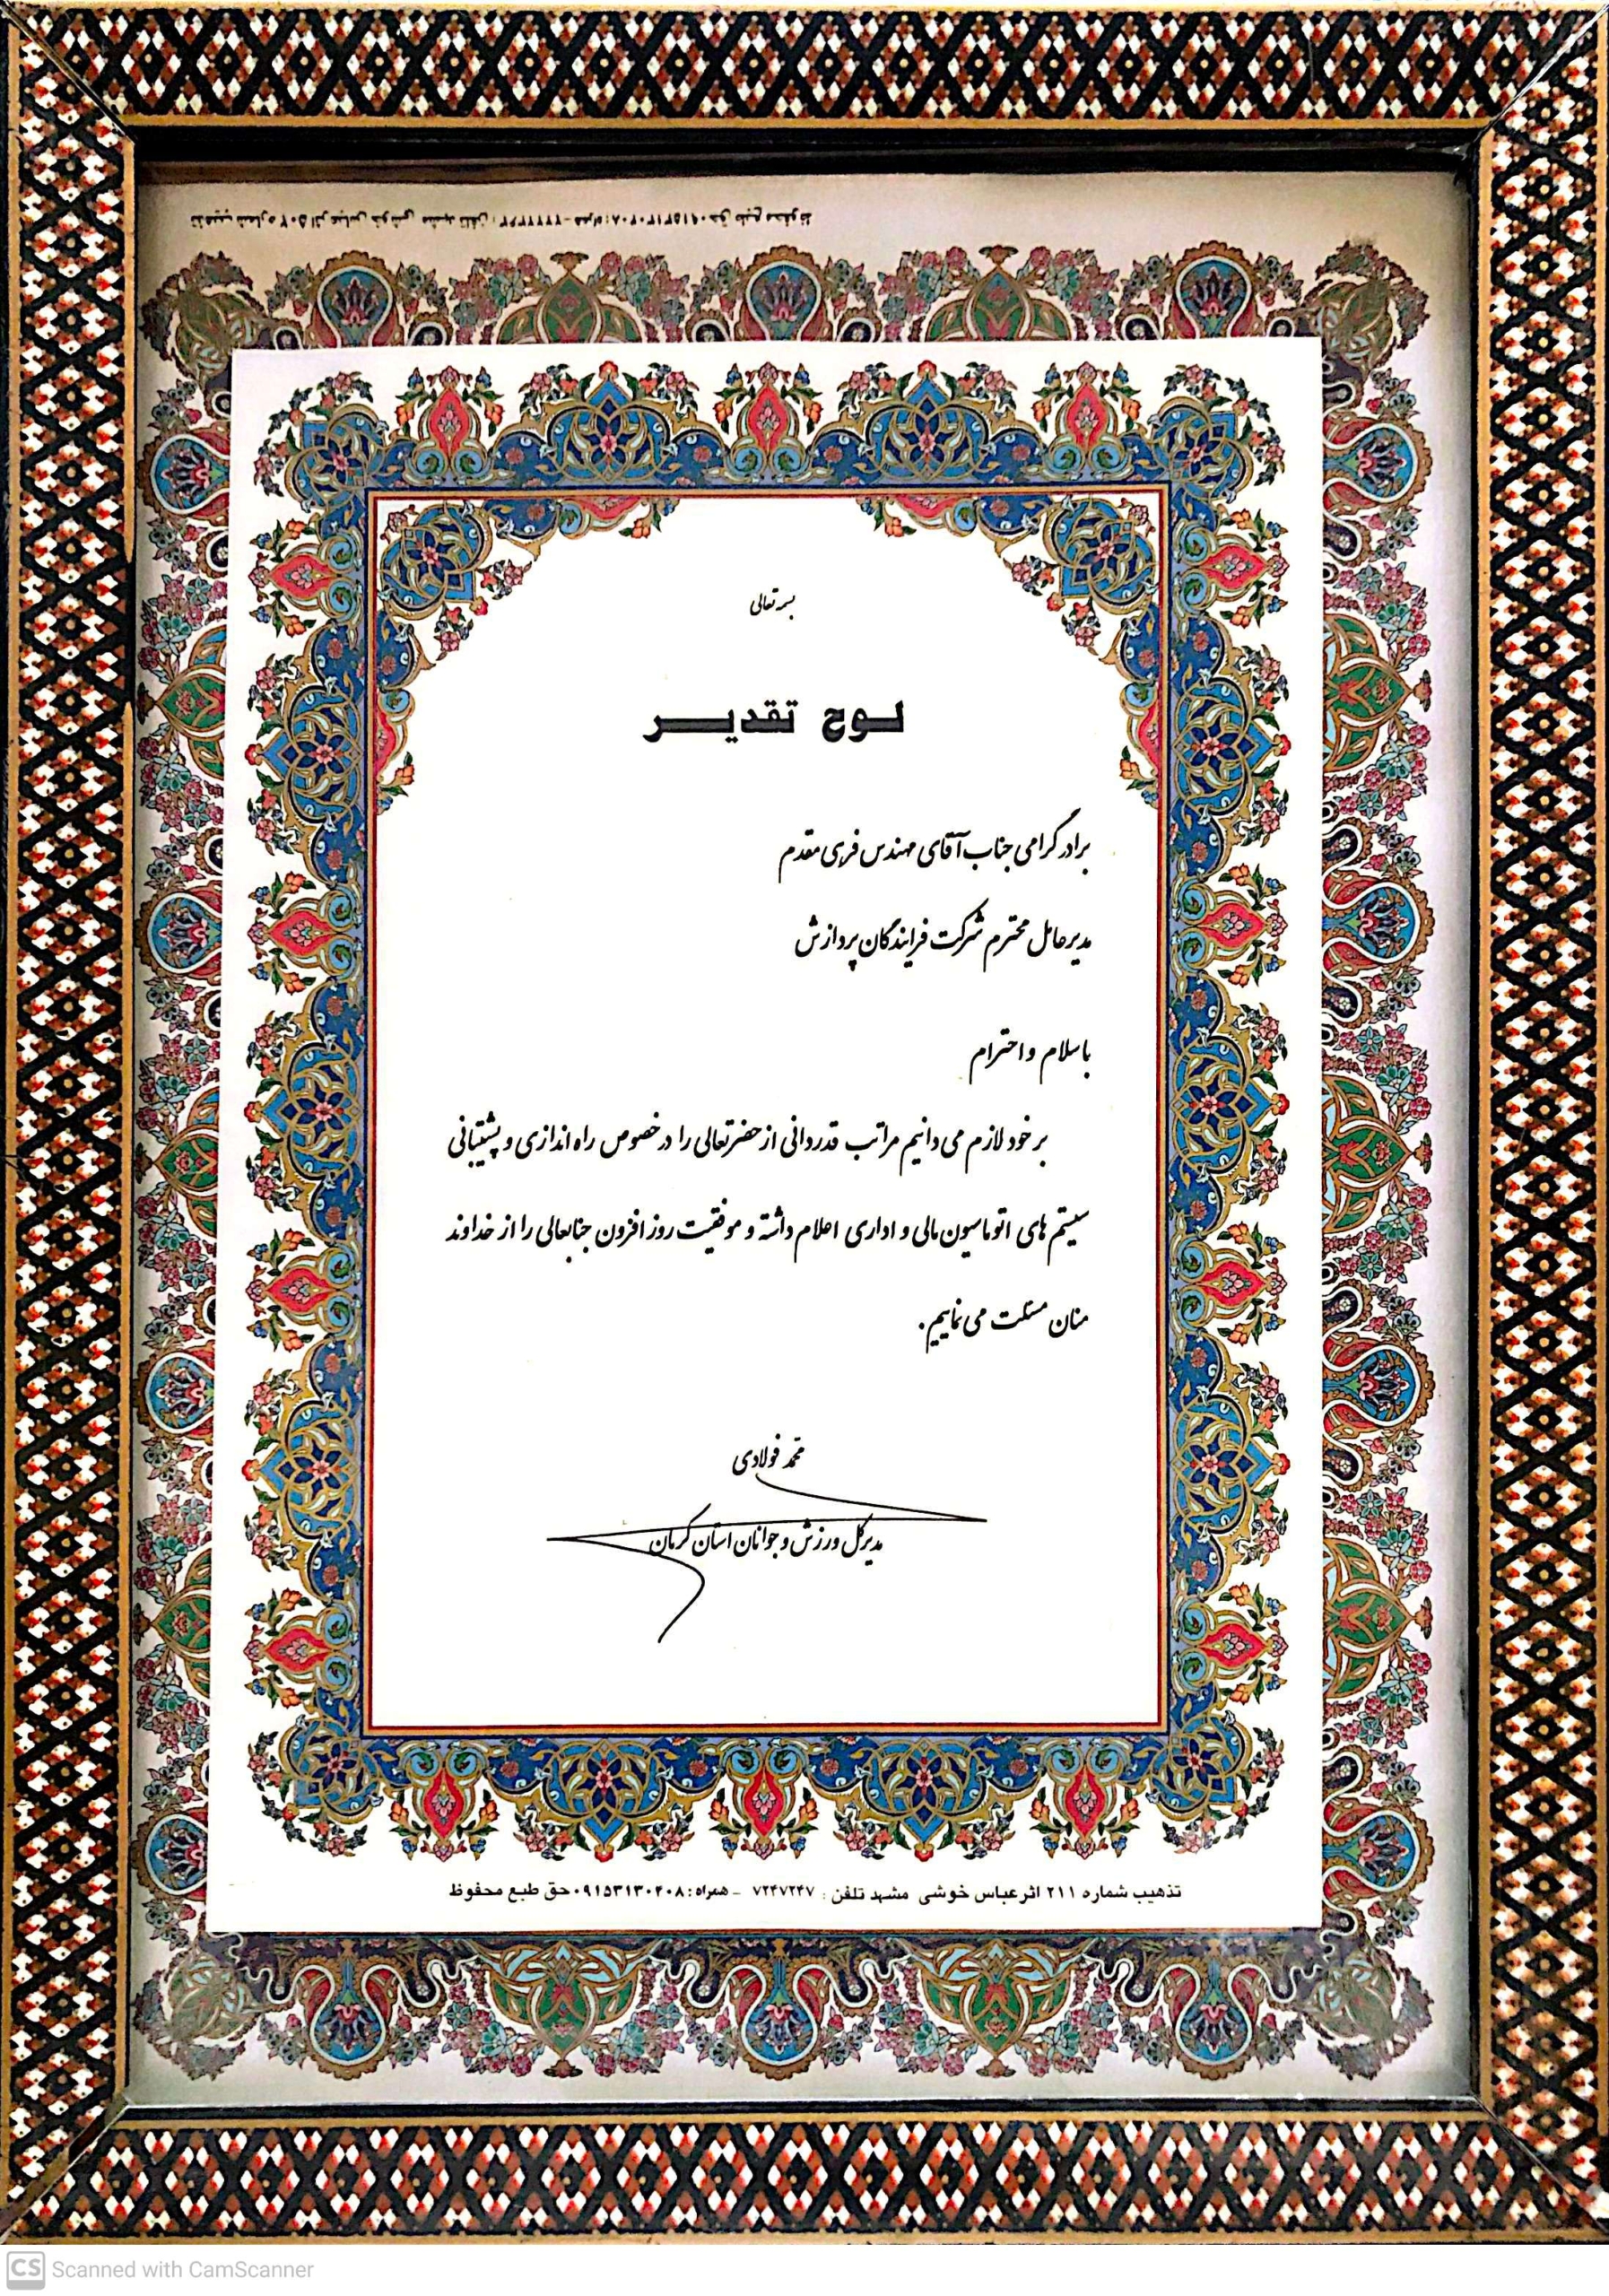 بسمه تعالی
لوح تقدیر
برادر گرامی جناب آقای مهندس فرهی مقدم
مدیرعامل محترم شرکت فرایندگان پردازش
با سلام و احترام
بر خود لازم می دانیم مراتب قدردانی از حضرتعالی را در خصوص راه اندازی و پشتیبانی
سیستم های اتوماسیون مالی و اداری اعلام داشته و موفقیت روز افزون جنابعالی را از خداوند
منان مسئلت می نماییم.
محمد فولادی
مدیرکل ورزش و جوانان استان کرمان
تذهیب شماره ۲۱۱ اثر عباس خوشی مشهد تلفن: ۷۲۴۷۲۴۷ - همراه: ۰۹۱۵۳۱۳۰۴۰۸ حق طبع محفوظ
CS Scanned with CamScanner